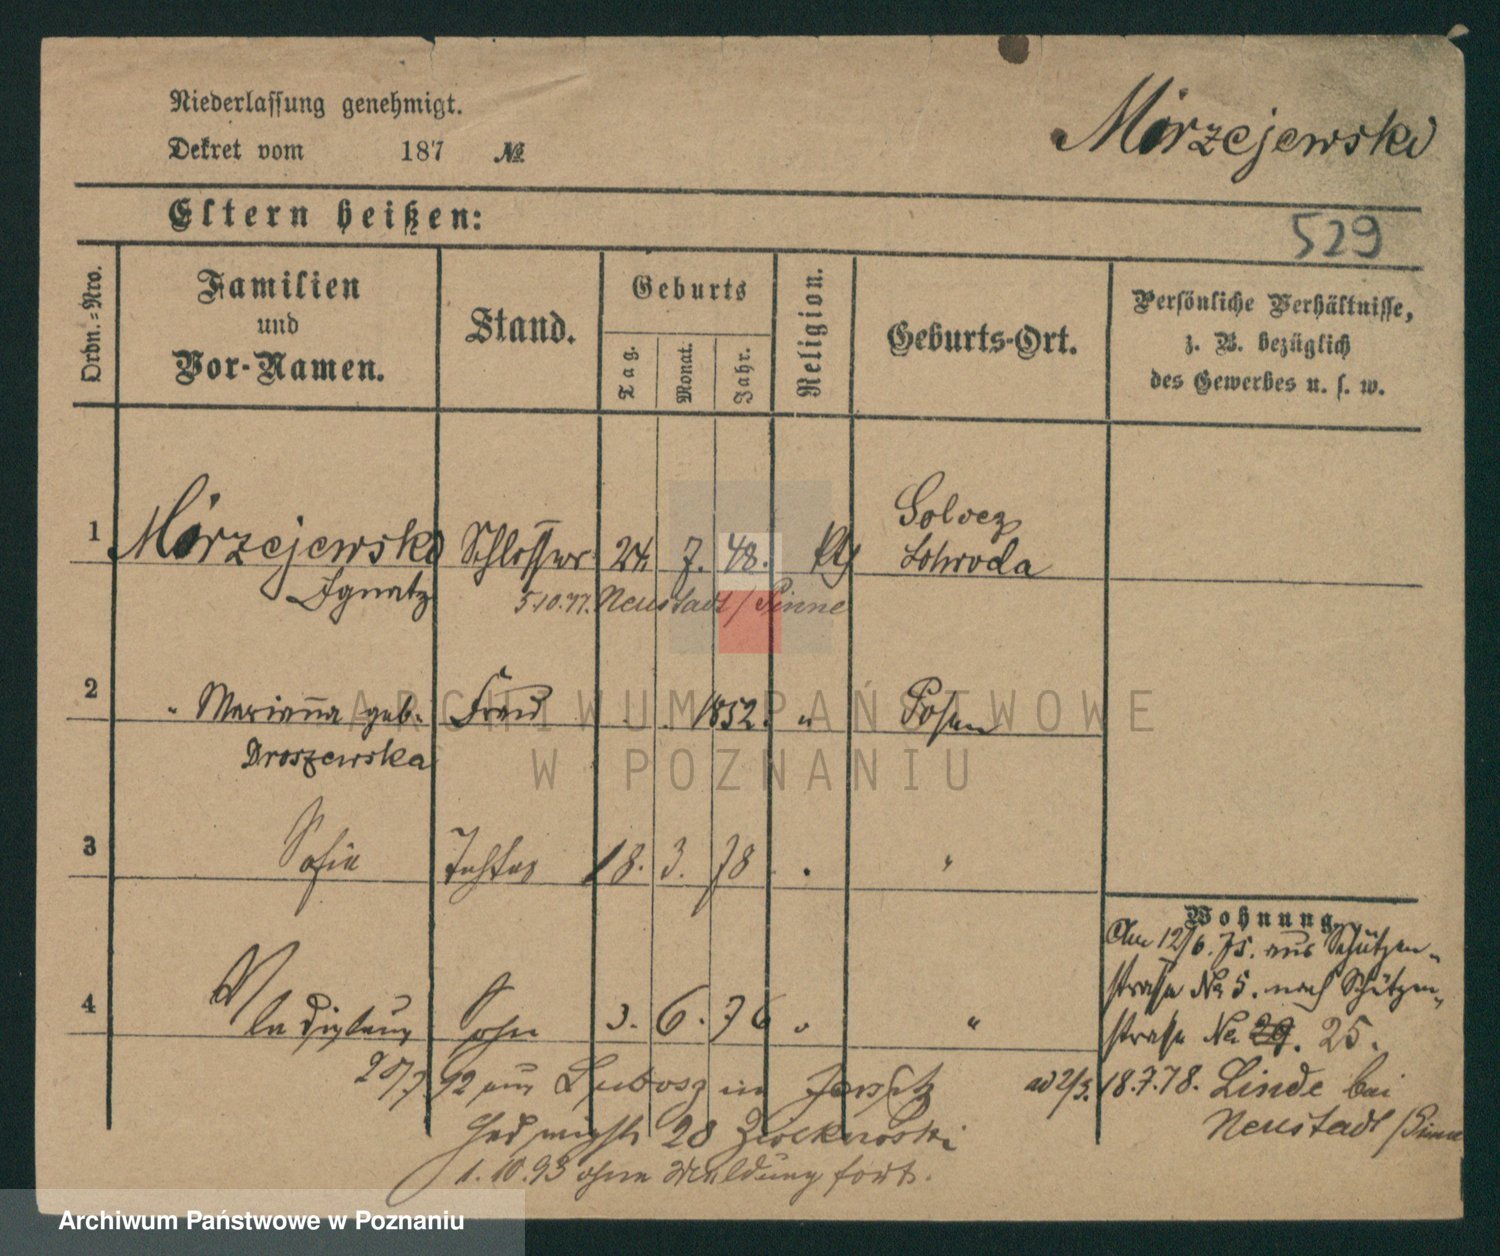 Niederlassung genehmigt.
Dekret vom 187 №
Morzejewski
Eltern heißen:
529
Ordn.=Nro.
Familien
und
Vor-Namen.
Stand.
Geburts
Tag.
Monat.
Jahr.
Religion.
Geburts-Ort.
Persönliche Verhältnisse,
z. B. bezüglich
des Gewerbes u. s. w.
1 Morzejewski Schlosser 24. 7. 48. Kth
Ignatz
5.10.77. Neustadt / Pinne
2 " Marianna geb. Frau 1852. " Posen
Droszewska
3 Sofie Tochter 18. 3. 78 "
4 Sohn 3. 6. 76 "
Wohnung.
Am 12/6. 75. aus Schützen-
straße No 5. nach Schützen-
straße No 29. 25.
18.7.78. Linde bei
Neustadt / Pinne
92 aus in Jersitz
28
1.10.93 ohne Meldung fort.
ARCHIWUM PAŃSTWOWE
W POZNANIU
Archiwum Państwowe w Poznaniu